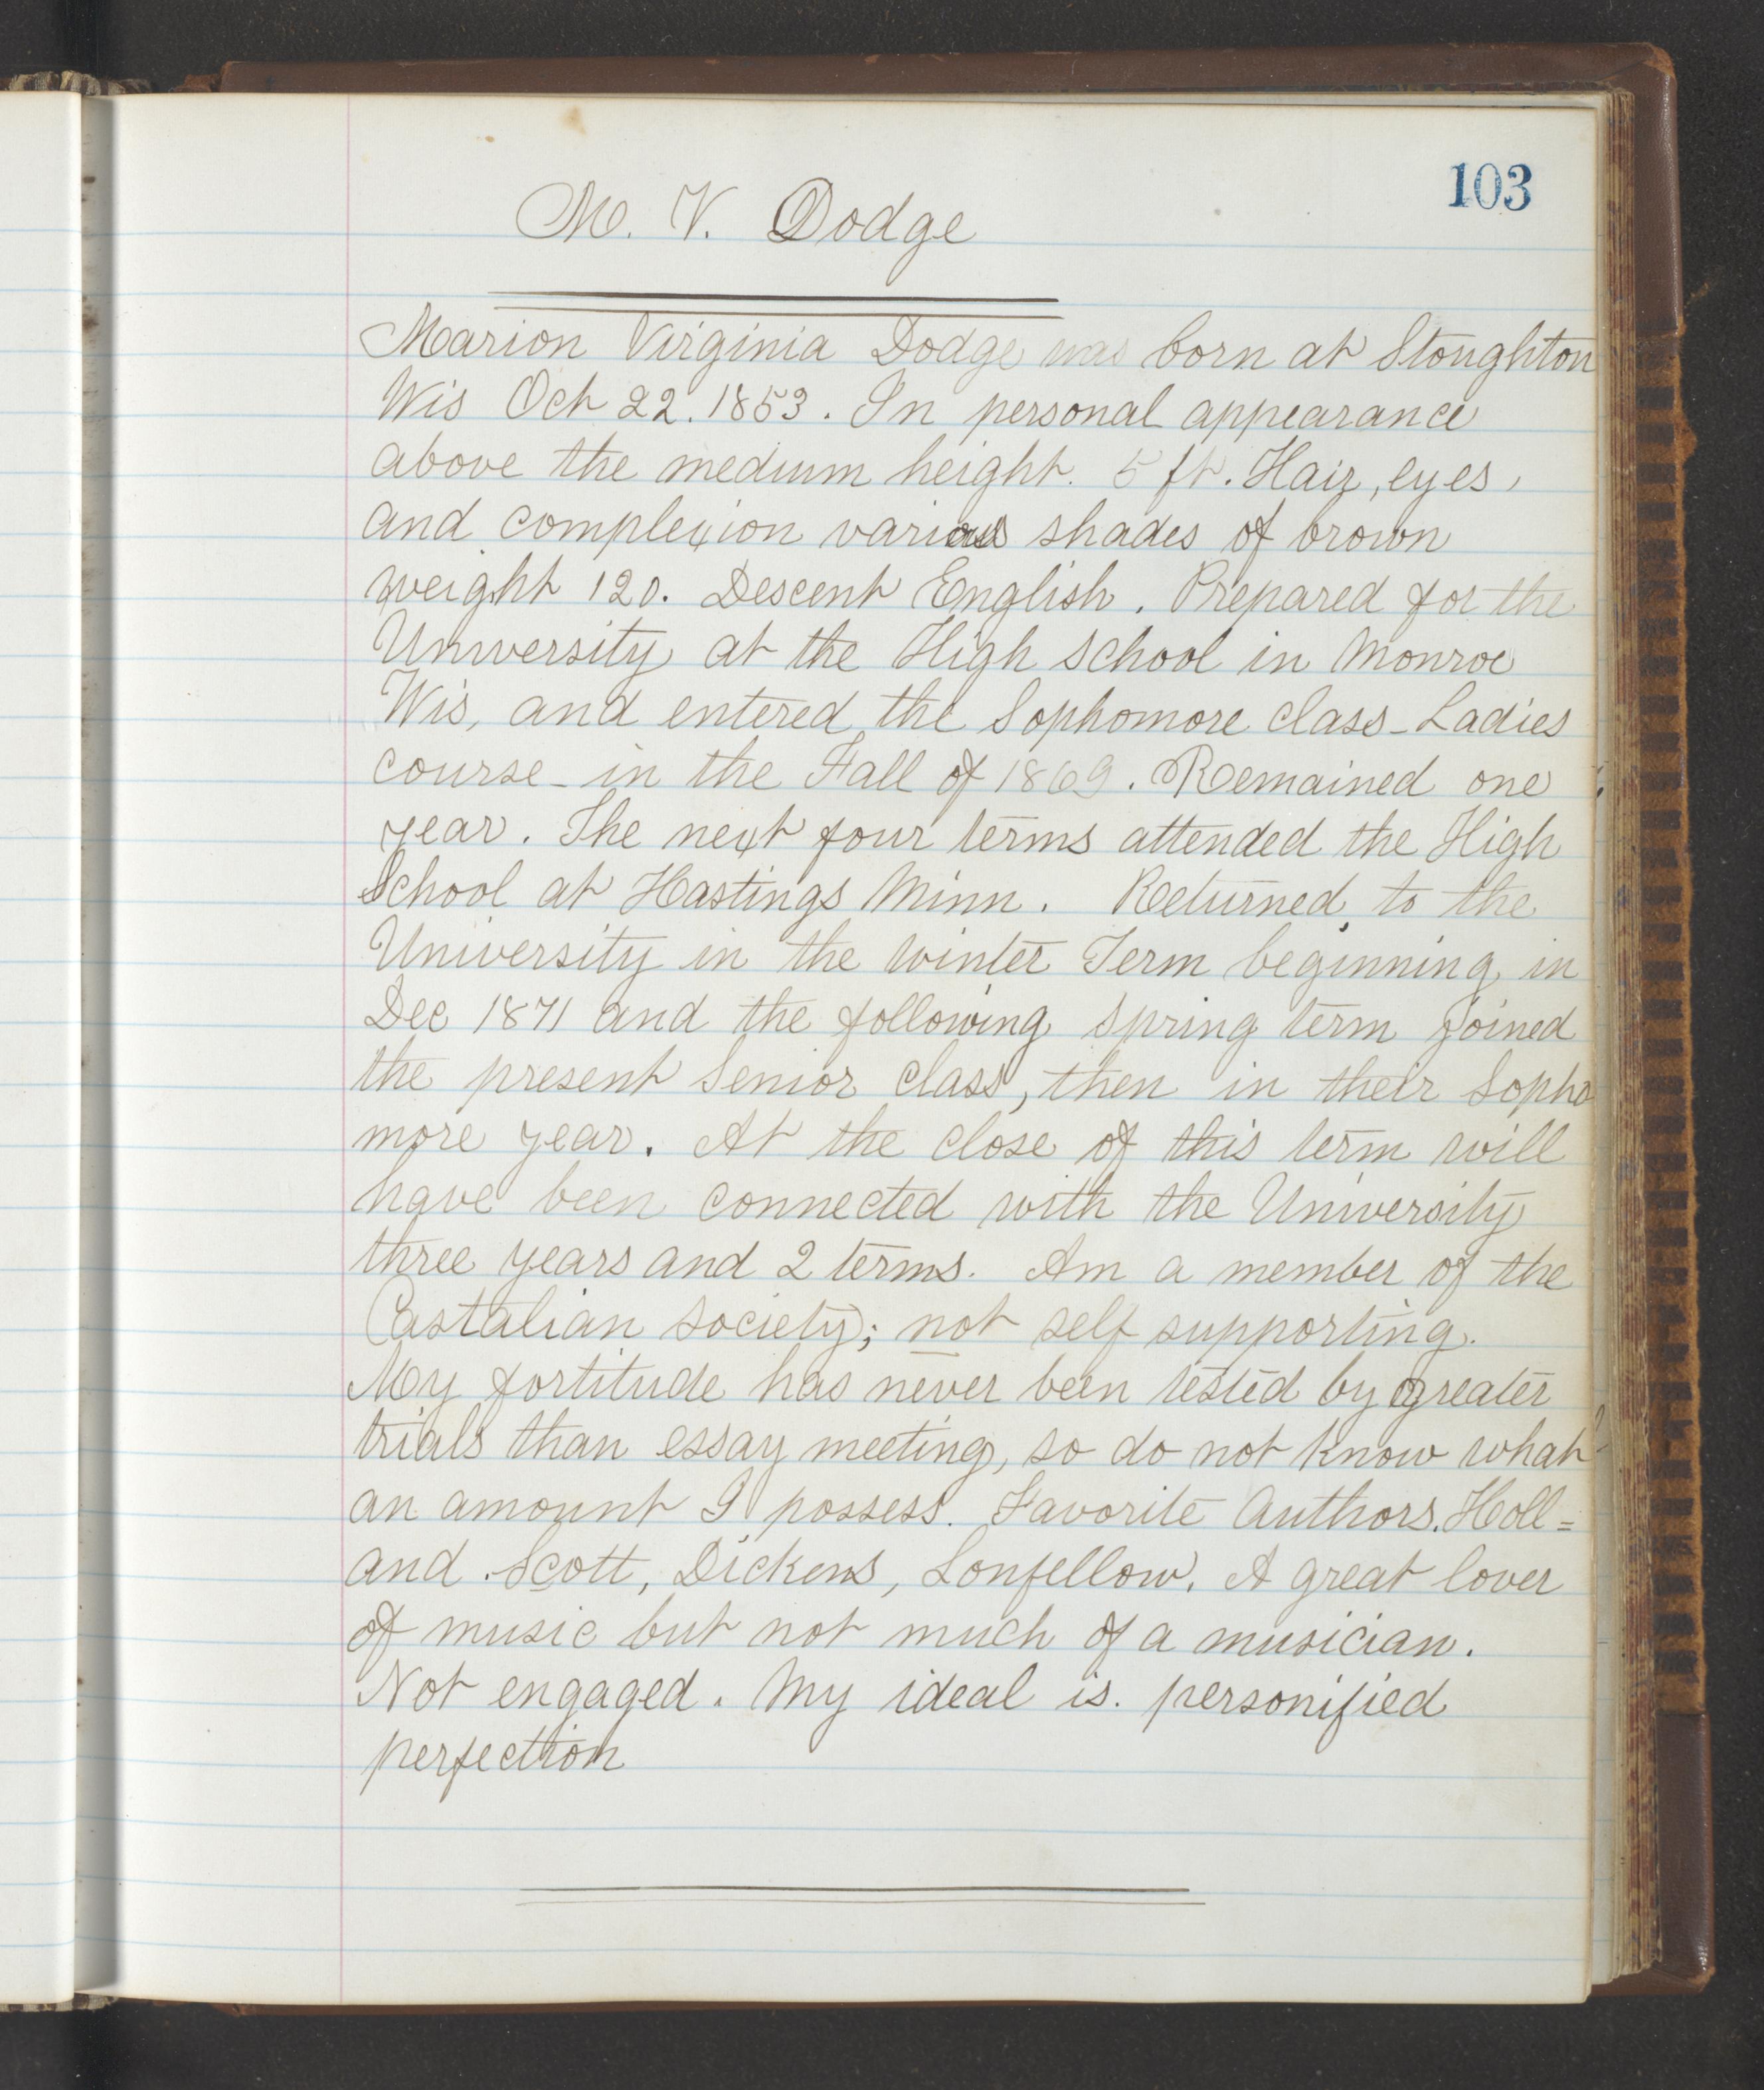 103
M. V. Dodge
Marion Virginia Dodge was born at Stoughton
Wis Oct 22. 1853. In personal appearance
above the medium height. 5 ft. Hair, eyes,
and complexion various shades of brown
weight 120. Descent English. Prepared for the
University at the High School in Monroe
Wis, and entered the Sophomore class - Ladies
course - in the Fall of 1869. Remained one
year. The next four terms attended the High
School at Hastings Minn. Returned to the
University in the Winter Term beginning in
Dec 1871 and the following spring term joined
the present Senior class, then in their Sopho
more year. At the close of this term will
have been connected with the University
three years and 2 terms. Am a member of the
Castalian Society; not self supporting.
My fortitude has never been tested by greater
trials than essay meeting, so do not know what
an amount I possess. Favorite Authors. Holl=
and. Scott, Dickens, Lonfellow. A great lover
of music but not much of a musician.
Not engaged. My ideal is. personified
perfection